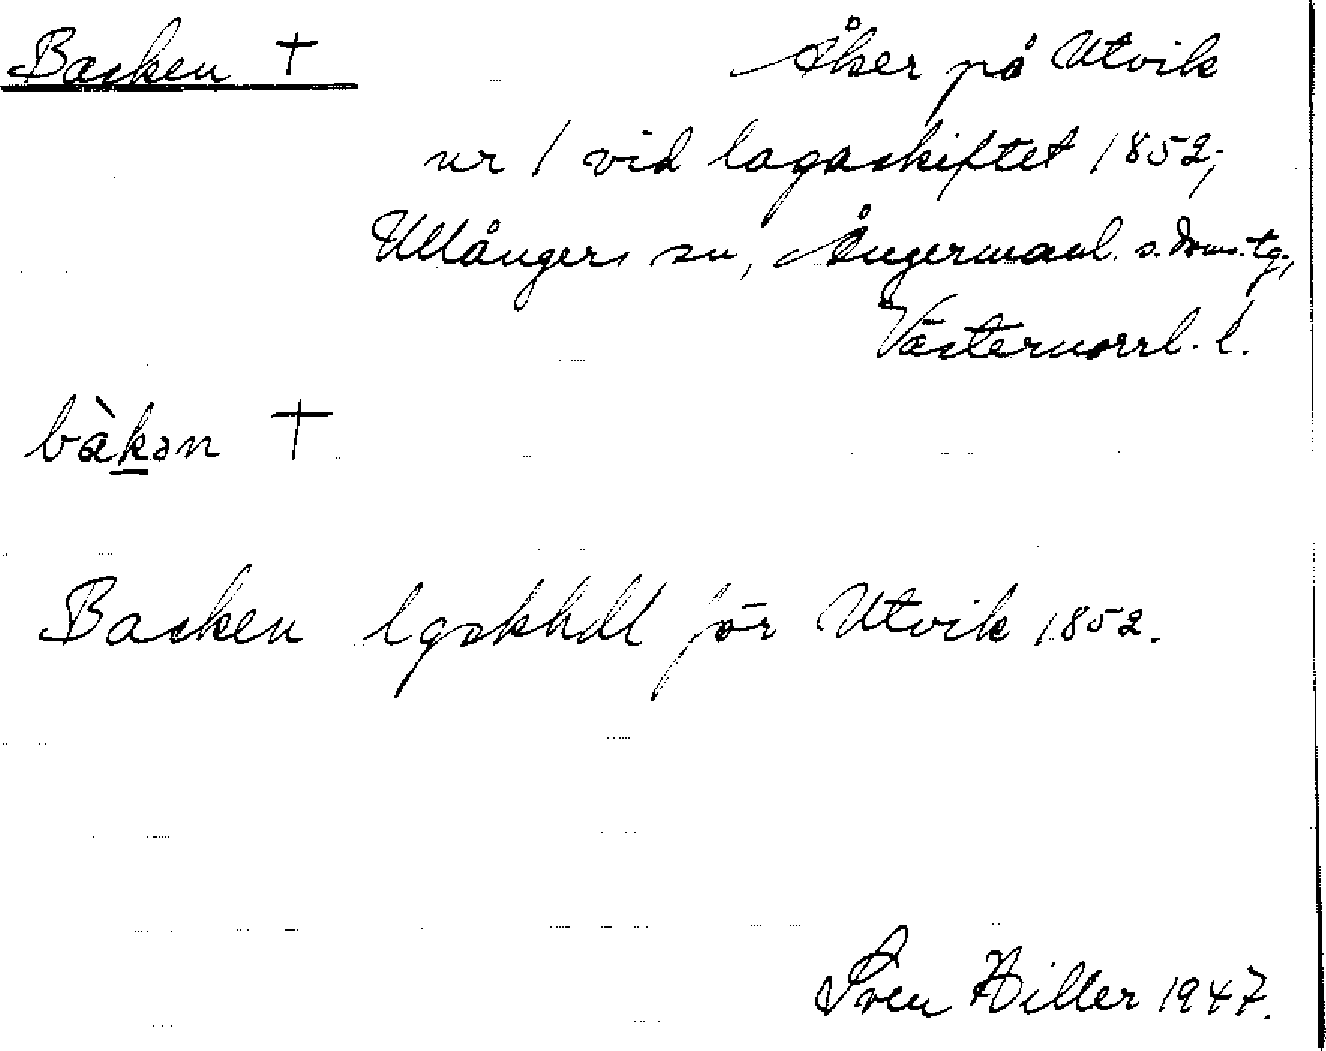 Backen † Åker på Utvik
nr 1 vid lagaskiftet 1852;
Ullångers sn, Ångermanl. s. doms. tg.,
Västernorrl. l.
bàkən †
Backen lgskhdl för Utvik 1852.
Sven Hiller 1947.